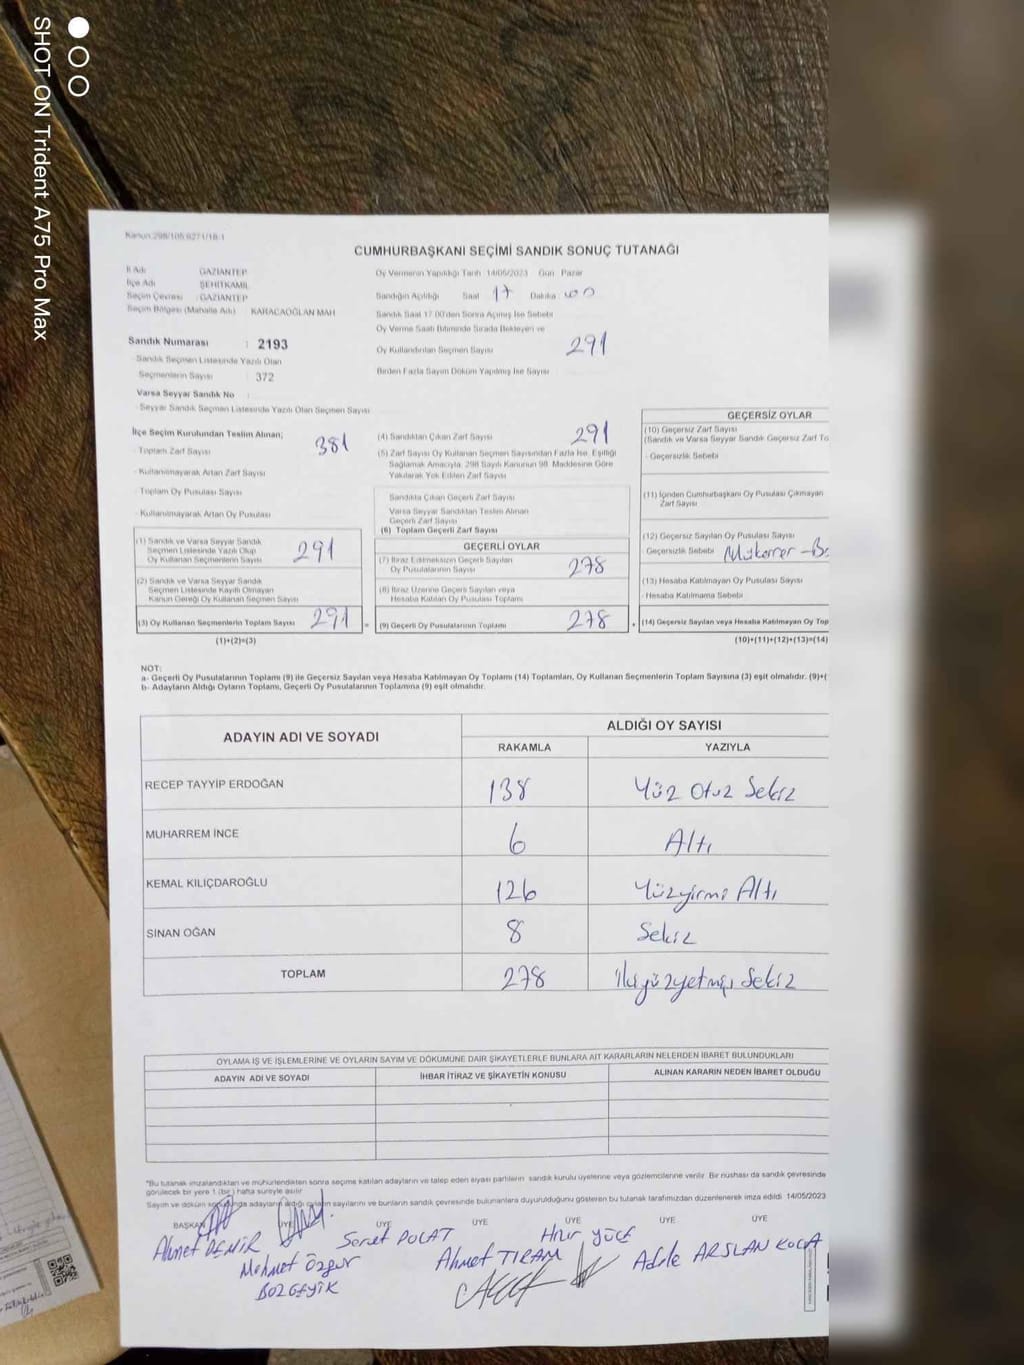 SHOT ON Trident A75 Pro Max
Kanun:298/105,6271/18-1
CUMHURBAŞKANI SEÇİMİ SANDIK SONUÇ TUTANAĞI
İl Adı GAZİANTEP
İlçe Adı ŞEHİTKAMİL
Seçim Çevresi : GAZİANTEP
Seçim Bölgesi (Mahalle Adı) KARACAOĞLAN MAH
Sandık Numarası : 2193
Sandık Seçmen Listesinde Yazılı Olan
Seçmenlerin Sayısı : 372
Varsa Seyyar Sandık No
Seyyar Sandık Seçmen Listesinde Yazılı Olan Seçmen Sayısı
Oy Vermenin Yapıldığı Tarih 14/05/2023 Gün Pazar
Sandığın Açıldığı Saat 17 Dakika 00
Sandık Saat 17.00'den Sonra Açılmış İse Sebebi
Oy Verme Saati Bitiminde Sırada Bekleyen ve
Oy Kullandırılan Seçmen Sayısı 291
Birden Fazla Sayım Döküm Yapılmış İse Sayısı
İlçe Seçim Kurulundan Teslim Alınan;
Toplam Zarf Sayısı 381
- Kullanılmayarak Artan Zarf Sayısı
- Toplam Oy Pusulası Sayısı
- Kullanılmayarak Artan Oy Pusulası
(1) Sandık ve Varsa Seyyar Sandık
Seçmen Listesinde Yazılı Olup
Oy Kullanan Seçmenlerin Sayısı 291
(2) Sandık ve Varsa Seyyar Sandık
Seçmen Listesinde Kayıtlı Olmayan
Kanun Gereği Oy Kullanan Seçmen Sayısı
(3) Oy Kullanan Seçmenlerin Toplam Sayısı 291 =
(1)+(2)=(3)
(4) Sandıktan Çıkan Zarf Sayısı 291
(5) Zarf Sayısı Oy Kullanan Seçmen Sayısından Fazla İse, Eşitliği
Sağlamak Amacıyla, 298 Sayılı Kanunun 98. Maddesine Göre
Yakılarak Yok Edilen Zarf Sayısı
Sandıkta Çıkan Geçerli Zarf Sayısı
Varsa Seyyar Sandıktan Teslim Alınan
Geçerli Zarf Sayısı
(6) Toplam Geçerli Zarf Sayısı
GEÇERLİ OYLAR
(7) İtiraz Edilmeksizin Geçerli Sayılan
Oy Pusulalarının Sayısı 278
(8) İtiraz Üzerine Geçerli Sayılan veya
Hesaba Katılan Oy Pusulası Toplamı
(9) Geçerli Oy Pusulalarının Toplamı 278 +
GEÇERSİZ OYLAR
(10) Geçersiz Zarf Sayısı
(Sandık ve Varsa Seyyar Sandık Geçersiz Zarf To
- Geçersizlik Sebebi
(11) İçinden Cumhurbaşkanı Oy Pusulası Çıkmayan
Zarf Sayısı
(12) Geçersiz Sayılan Oy Pusulası Sayısı
Geçersizlik Sebebi Mükerrer
(13) Hesaba Katılmayan Oy Pusulası Sayısı
- Hesaba Katılmama Sebebi
(14) Geçersiz Sayılan veya Hesaba Katılmayan Oy Top
(10)+(11)+(12)+(13)=(14)
NOT:
a- Geçerli Oy Pusulalarının Toplamı (9) ile Geçersiz Sayılan veya Hesaba Katılmayan Oy Toplamı (14) Toplamları, Oy Kullanan Seçmenlerin Toplam Sayısına (3) eşit olmalıdır. (9)+(
b- Adayların Aldığı Oyların Toplamı, Geçerli Oy Pusulalarının Toplamına (9) eşit olmalıdır.
ADAYIN ADI VE SOYADI ALDIĞI OY SAYISI
RAKAMLA YAZIYLA
RECEP TAYYİP ERDOĞAN 138 Yüz Otuz Sekiz
MUHARREM İNCE 6 Altı
KEMAL KILIÇDAROĞLU 126 Yüzyirmi Altı
SİNAN OĞAN 8 Sekiz
TOPLAM 278 ikiyüzyetmiş Sekiz
OYLAMA İŞ VE İŞLEMLERİNE VE OYLARIN SAYIM VE DÖKÜMÜNE DAİR ŞİKAYETLERLE BUNLARA AİT KARARLARIN NELERDEN İBARET BULUNDUKLARI
ADAYIN ADI VE SOYADI İHBAR İTİRAZ VE ŞİKAYETİN KONUSU ALINAN KARARIN NEDEN İBARET OLDUĞU
*Bu tutanak imzalandıktan ve mühürlendikten sonra seçime katılan adayların ve talep eden siyasi partilerin sandık kurulu üyelerine veya gözlemcilerine verilir. Bir nüshası da sandık çevresinde
görülecek bir yere 1 (bir) hafta süreyle asılır.
Sayım ve döküm sonucunda adayların aldığı oyların sayılarını ve bunların sandık çevresinde bulunanlara duyurulduğunu gösteren bu tutanak tarafımızdan düzenlenerek imza edildi. 14/05/2023
BAŞKAN ÜYE ÜYE ÜYE ÜYE ÜYE ÜYE
Ahmet DEMİR
Mehmet Özgür
BOZGEYİK
POLAT
Ahmet TIRAM
YÜCE
ARSLAN KOCA